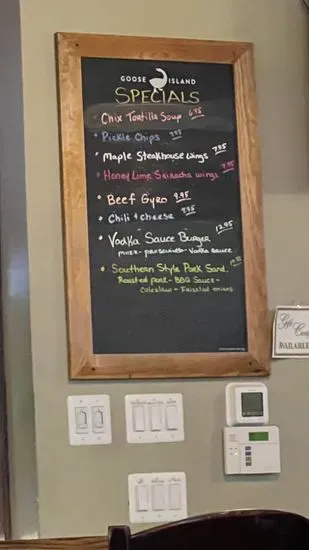 GOOSE ISLAND
SPECIALS
• Chix Tortilla Soup 6.95
• Pickle Chips 7.95
• Maple Steakhouse wings 7.95
• Honey Lime Sriracha wings 7.95
• Beef Gyro 9.95
• Chili & cheese 7.95
• Vodka "Sauce" Burger 12.95
mozz - prosciutto - Vodka sauce
• Southern Style Pork Sand.
Roasted pork - BBQ Sauce -
Coleslaw - Frizzled onions
Gift
AVAILABLE